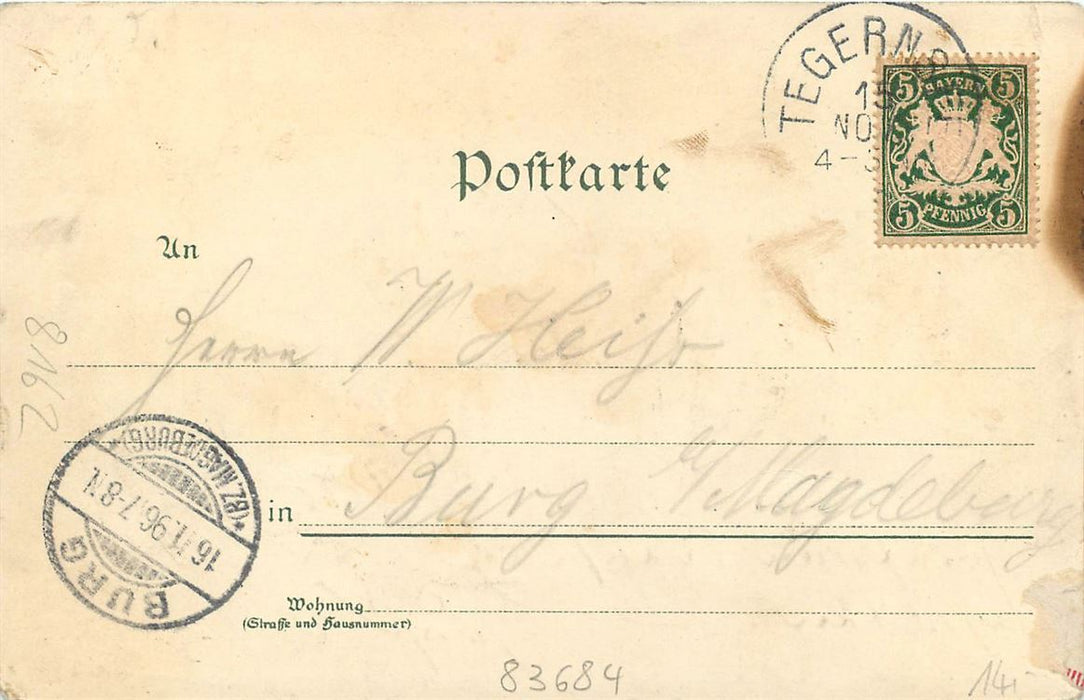 TEGERNS
15
NO
4-5
BAYERN
5 5
5 5
PFENNIG
Postkarte
An
Herrn W. Heiſe
2918
Burg b/Magdeburg
in
(BZ. MAGDEBURG)
16.11.96.7-8N.
BURG
Wohnung
(Straſse und Hausnummer)
83684
14,-